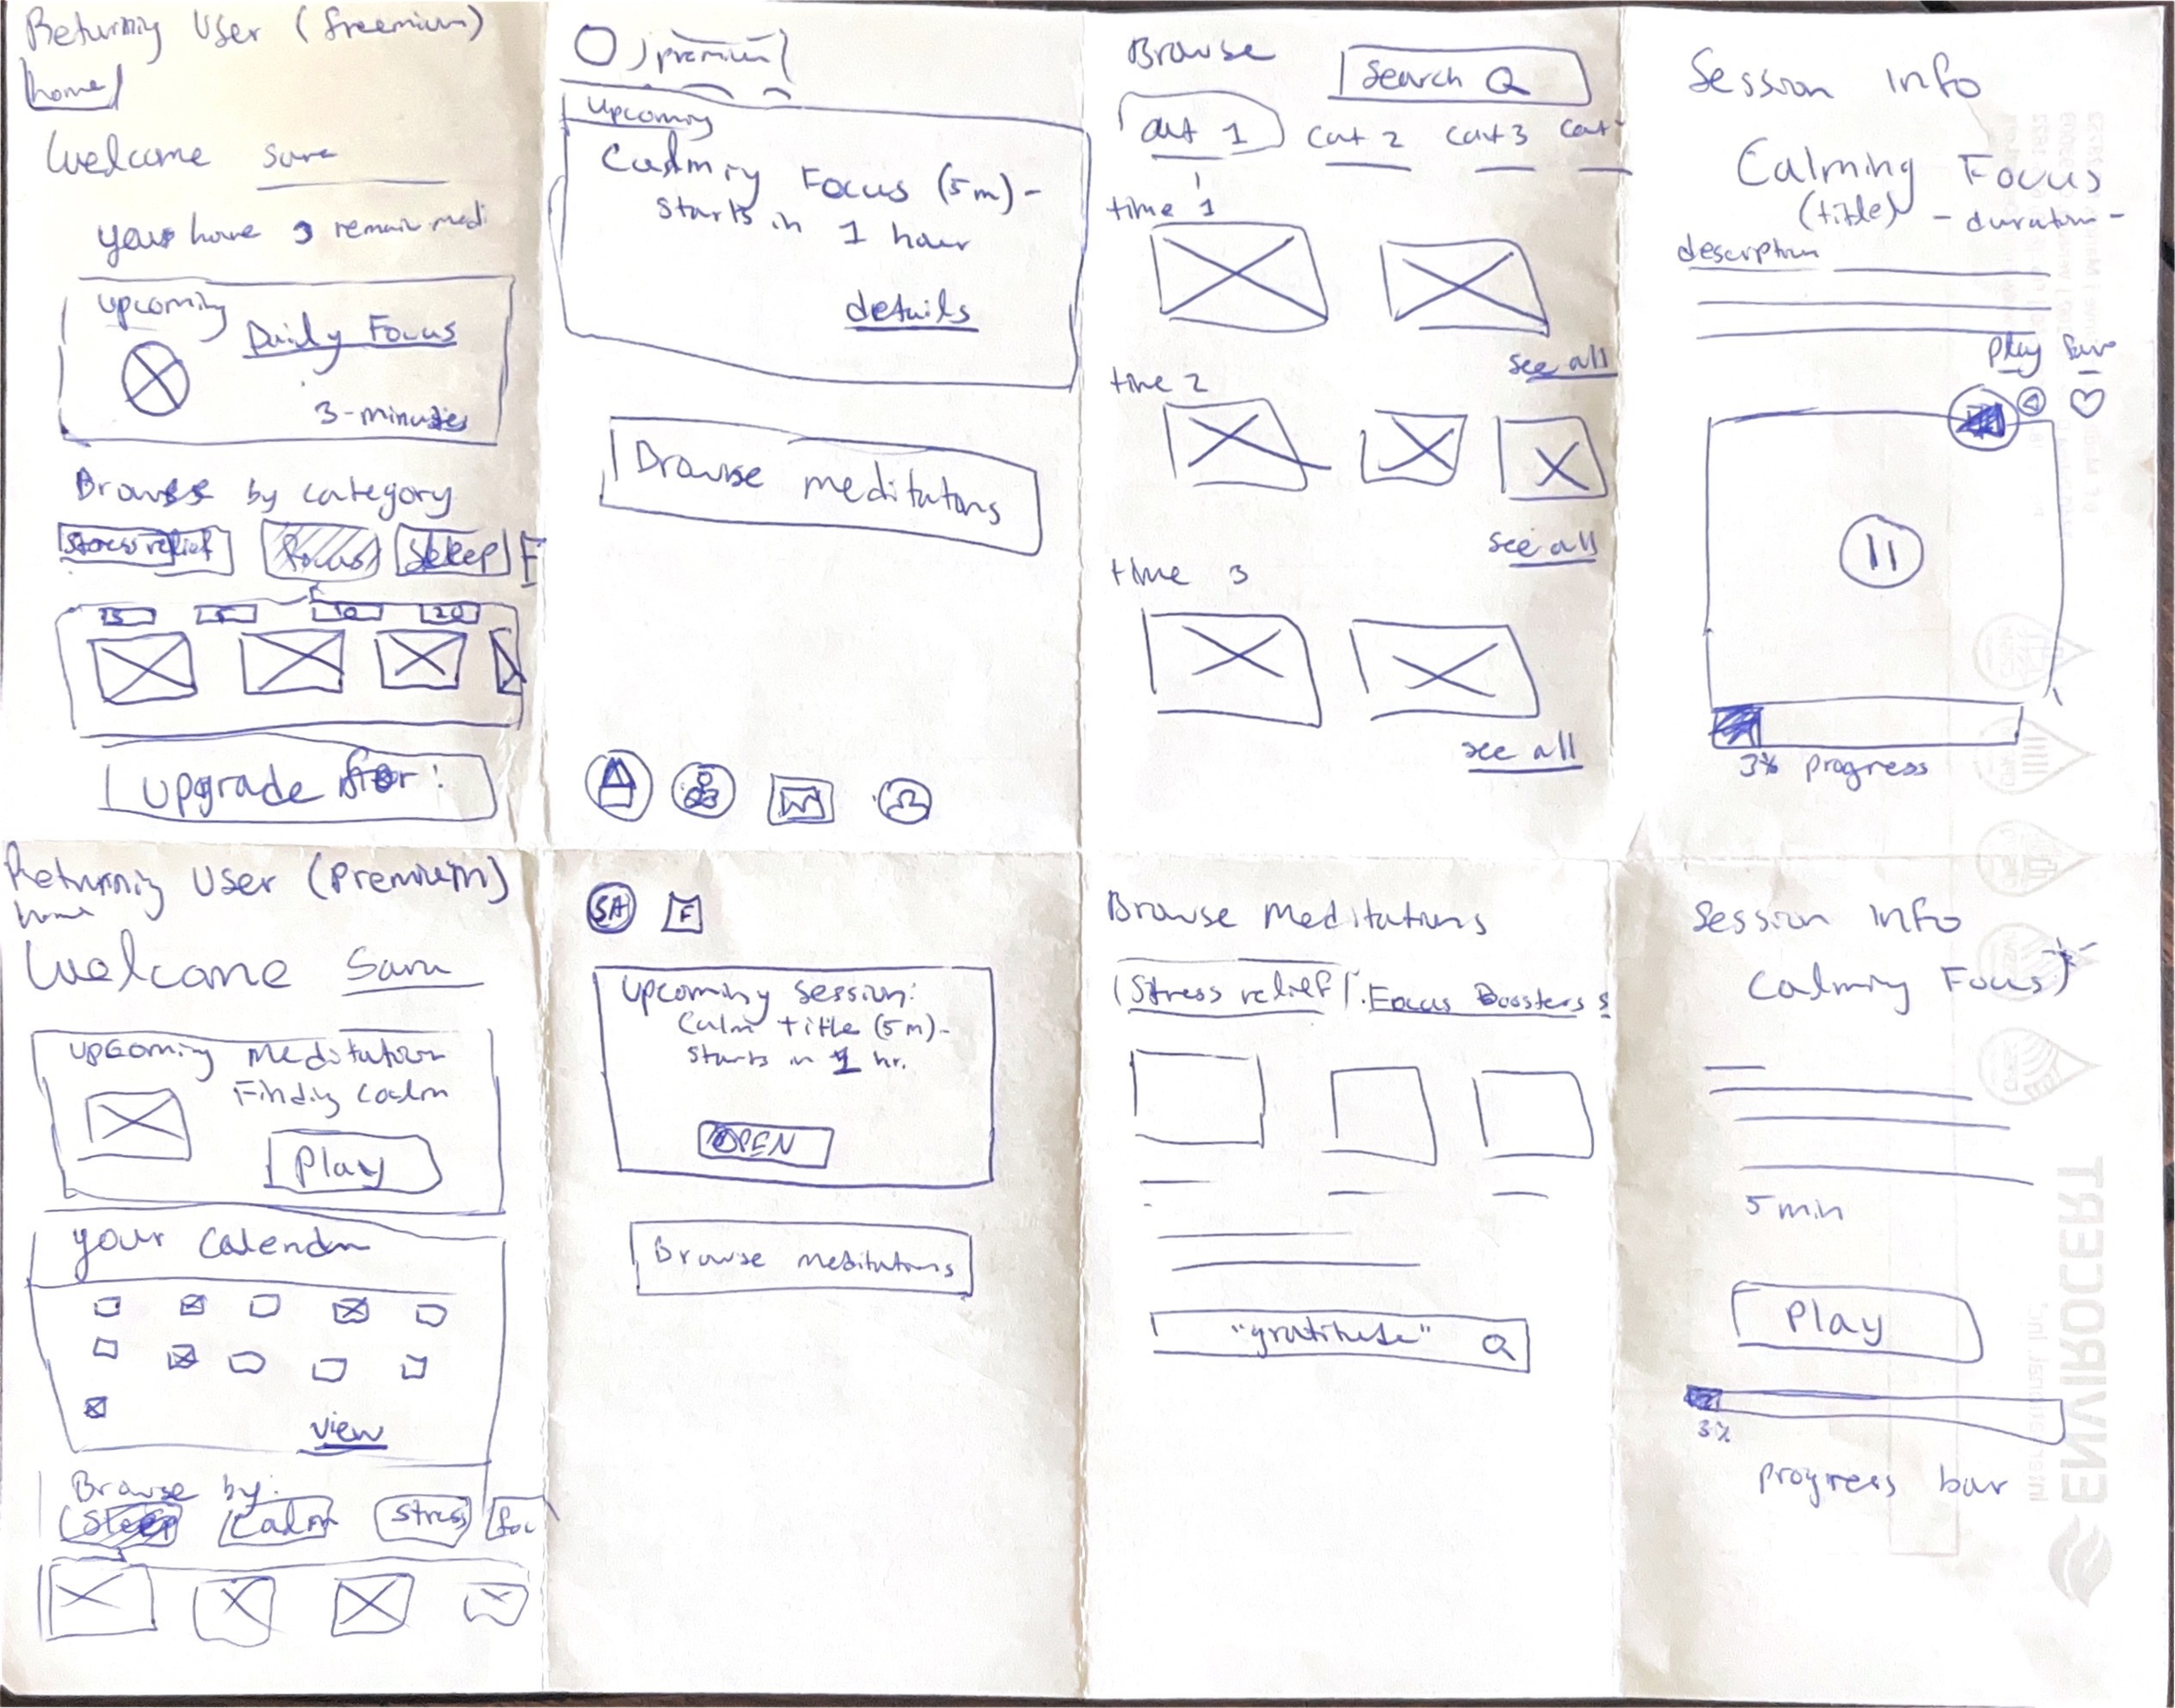 Returning User (freemium)
home
Welcome Sara
your have 3 remain medi
upcoming
Daily Focus
3-minutes
Browse by category
stress relief Focus Sleep F
5 10 20
upgrade for:
premium
upcoming
Calming Focus (5m)-
starts in 1 hour
details
Browse meditatons
Browse
Search
cat 1 cat 2 cat 3 cat
time 1
see all
time 2
see all
time 3
see all
Session Info
Calming Focus
(title) - duration -
description
Play Save
3% progress
Returning User (Premium)
home
Welcome Sara
upcoming meditation
Finding Calm
Play
your Calendar
view
Browse by:
Sleep Calm stress foc
SA F
Upcoming session:
Calm title (5m)-
starts in 1 hr.
OPEN
Browse meditations
Browse Meditations
Stress relief Focus Boosters s
"gratitude"
Session Info
Calming Focus
5 min
Play
3%
progress bar
ENVIROCERT
International, Inc.